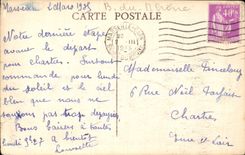 Marseille 2 Mars 1938
B. du Rhône
CARTE POSTALE
Notre dernière étape
avant le départ
pour Chartres. Surtout
commande pour lundi
du soleil et le ciel
bleu que nous ne
soyons pas trop dépaysées
Bons baisers à toutes
lundi 9h27 à
Mademoiselle
6 Rue Noël
Chartres
Eure et Loir